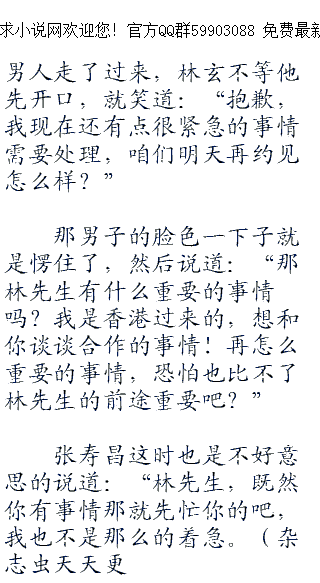 求小说网欢迎您！官方QQ群59903088 免费最新
男人走了过来，林玄不等他
先开口，就笑道：“抱歉，
我现在还有点很紧急的事情
需要处理，咱们明天再约见
怎么样？”
那男子的脸色一下子就
是愣住了，然后说道：“那
林先生有什么重要的事情
吗？我是香港过来的，想和
你谈谈合作的事情！再怎么
重要的事情，恐怕也比不了
林先生的前途重要吧？”
张寿昌这时也是不好意
思的说道：“林先生，既然
你有事情那就先忙你的吧，
我也不是那么的着急。（杂
志虫天天更